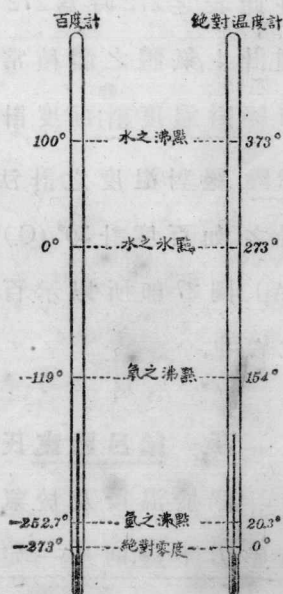 百度計 絕對温度計
100° 水之沸點 373°
0° 水之冰點 273°
-119° 氧之沸點 154°
-252.7° 氫之沸點 20.3°
-273° 絕對零度 0°